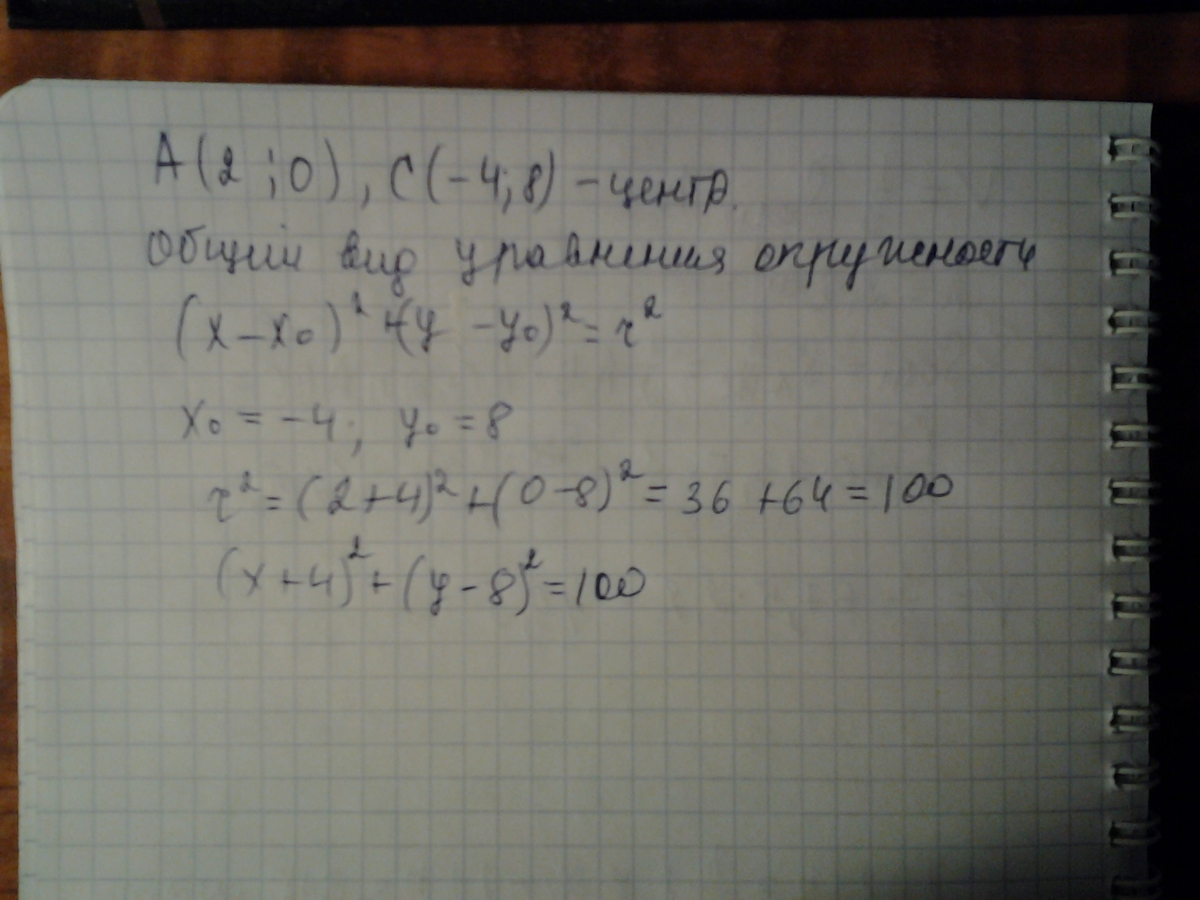 A(2;0), C(-4;8) - центр.
Общий вид уравнения окружности
(x-x₀)²+(y-y₀)²=r²
x₀=-4; y₀=8
r²=(2+4)²+(0-8)²=36+64=100
(x+4)²+(y-8)²=100